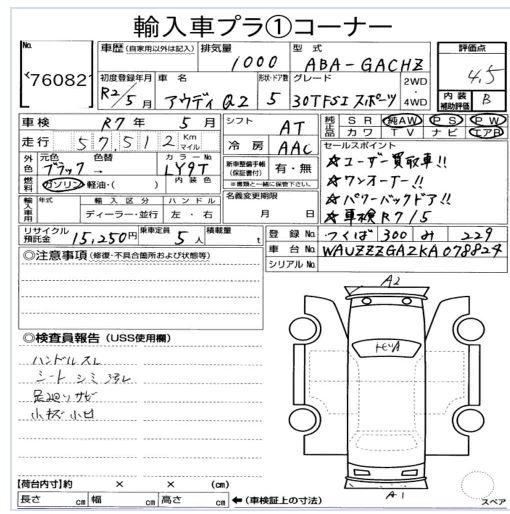 輸入車プラ①コーナー
No. 76082
車歴 (自家用以外は記入) 排気量 1000 型式 ABA-GACHZ 評価点 4.5
初度登録年月 R2/5月 車名 アウディ Q2 形状・ドア数 5 グレード 30TFSI スポーツ 2WD・4WD 内装補助評価 B
車検 R7年 5月 シフト AT 純正品 SR 純AW PS PW
走行 57,512 Km マイル 冷房 AAC カワ TV ナビ エアB
外色 元色 ブラック 色替 → カラーNo. LY9T 新車整備手帳 (保証書付) 有・無 ※書類と一緒に保管下さい。
セールスポイント
☆ユーザー買取車!!
☆ワンオーナー!!
☆パワーバックドア!!
☆車検R7/5
燃料 ガソリン・軽油・( ) 内装色
輸入車用 年式 輸入区分 ハンドル 名義変更期限 月 日
ディーラー・並行 左・右
リサイクル預託金 15,250円 乗車定員 5人 積載量 t
登録No. つくば 300 み 229
車台No. WAUZZZGAZKA078824
シリアルNo.
◎注意事項 (修復・不具合箇所および状態等)
◎検査員報告 (USS使用欄)
ハンドルスレ
シート シミ
足廻りサビ
小キズ小凹
A2
A1
スペア
【荷台内寸】約 × × (cm)
長さ cm 幅 cm 高さ cm ←(車検証上の寸法)